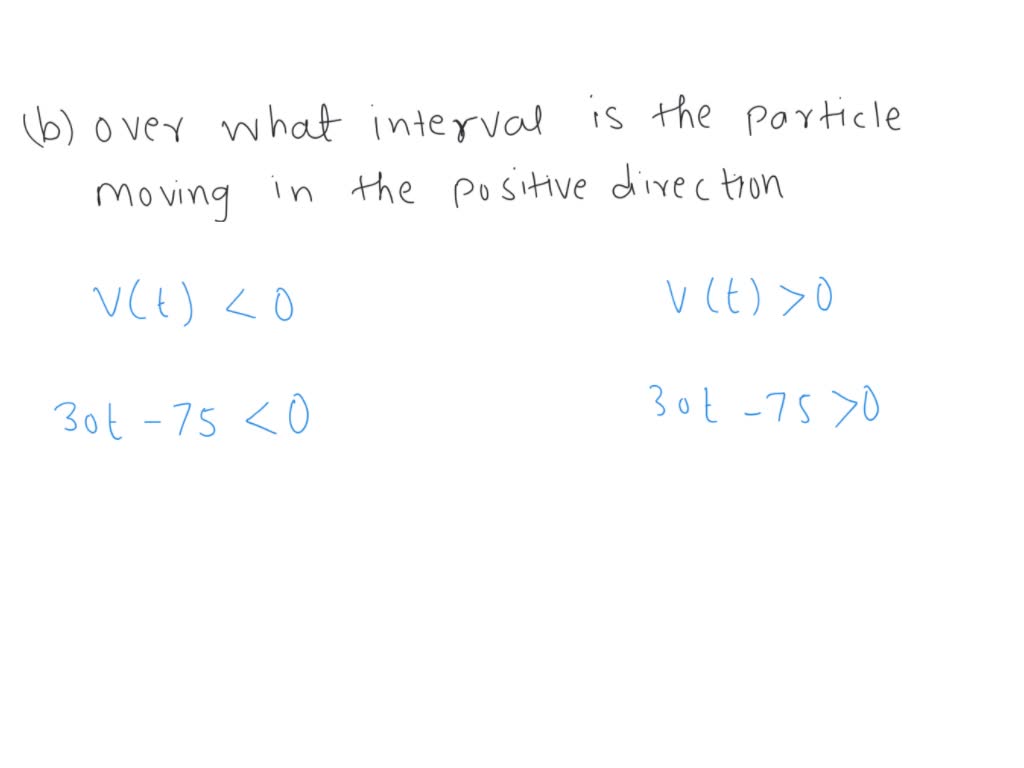 (b) over what interval is the particle
moving in the positive direction
v(t) < 0
v(t) > 0
30t - 75 < 0
30t - 75 > 0